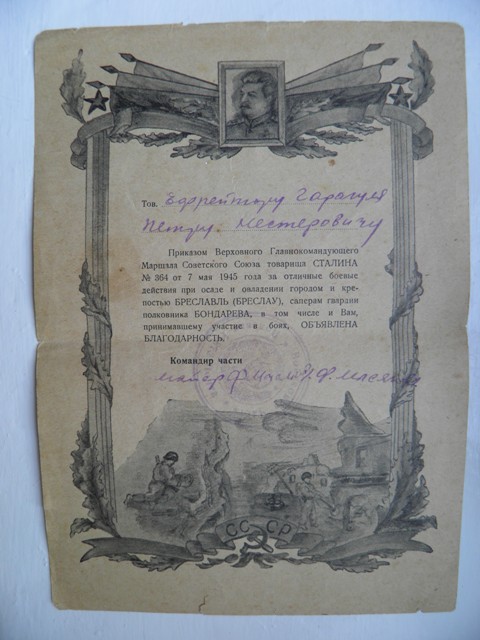 Тов. Ефрейтору Гарагуля
Петру Нестеровичу
Приказом Верховного Главнокомандующего
Маршала Советского Союза товарища СТАЛИНА
№ 364 от 7 мая 1945 года за отличные боевые
действия при осаде и овладении городом и кре-
постью БРЕСЛАВЛЬ (БРЕСЛАУ), саперам гвардии
полковника БОНДАРЕВА, в том числе и Вам,
принимавшему участие в боях, ОБЪЯВЛЕНА
БЛАГОДАРНОСТЬ.
Командир части
майор
СССР